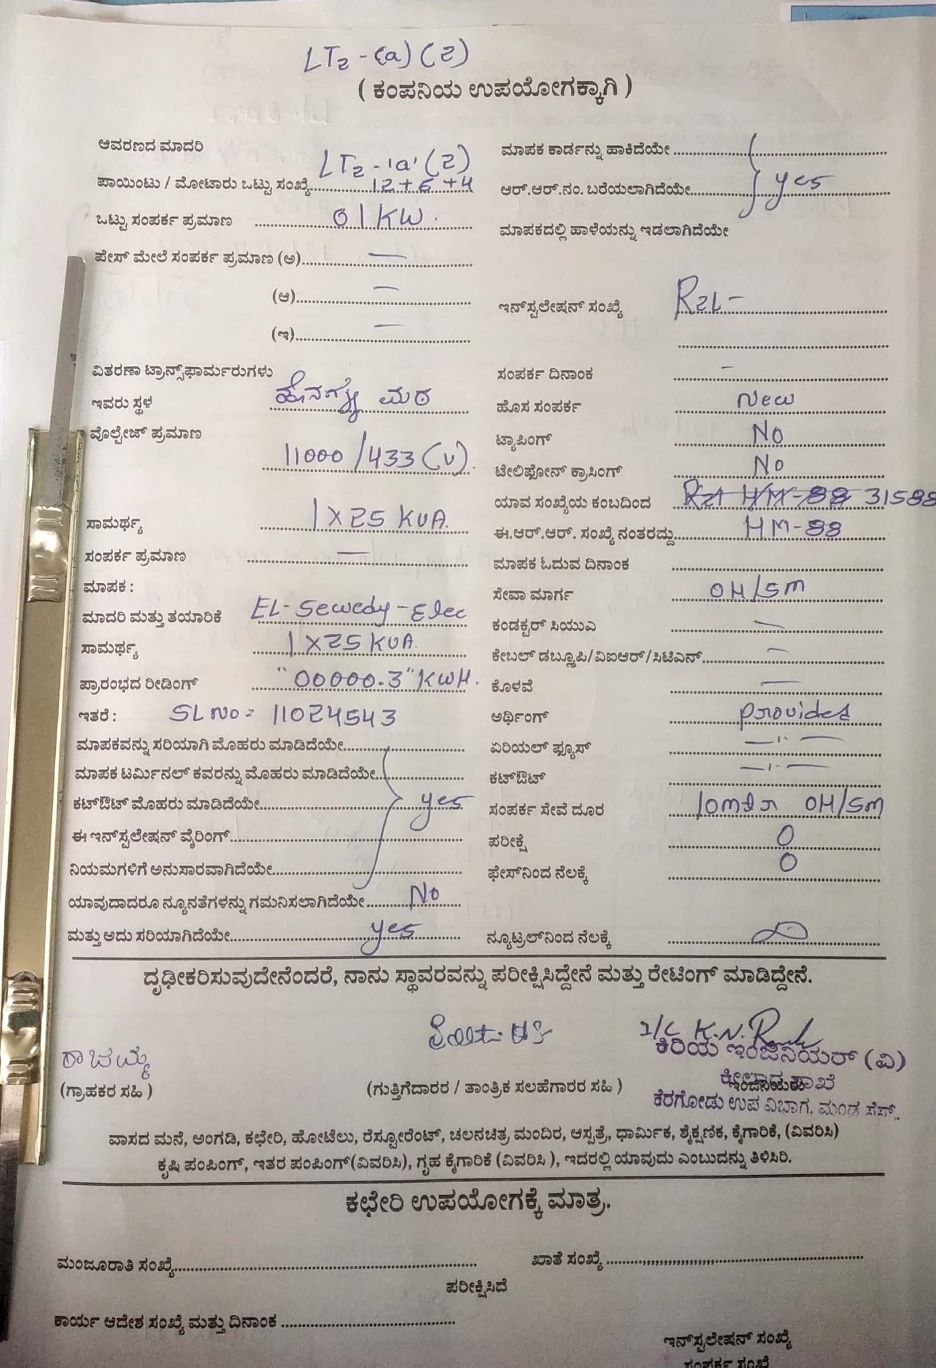 LT2-(a)(2)
( ಕಂಪನಿಯ ಉಪಯೋಗಕ್ಕಾಗಿ )
ಆವರಣದ ಮಾದರಿ LT2-'a'(2)
ಪಾಯಿಂಟು / ಮೋಟಾರು ಒಟ್ಟು ಸಂಖ್ಯೆ 12+6+4
ಒಟ್ಟು ಸಂಪರ್ಕ ಪ್ರಮಾಣ 01KW.
ಫೇಸ್ ಮೇಲೆ ಸಂಪರ್ಕ ಪ್ರಮಾಣ (ಅ) —
(ಆ) —
(ಇ) —
ವಿತರಣಾ ಟ್ರಾನ್ಸ್‌ಫಾರ್ಮರುಗಳು
ಇವರು ಸ್ಥಳ ಮಠ
ವೊಲ್ಟೇಜ್ ಪ್ರಮಾಣ
11000/433(V).
ಸಾಮರ್ಥ್ಯ 1X25 KVA.
ಸಂಪರ್ಕ ಪ್ರಮಾಣ —
ಮಾಪಕ :
ಮಾದರಿ ಮತ್ತು ತಯಾರಿಕೆ EL-Sewedy-Elec
ಸಾಮರ್ಥ್ಯ 1X25 KVA.
ಪ್ರಾರಂಭದ ರೀಡಿಂಗ್ "00000.3"KWH.
ಇತರೆ : SL No= 11024543
ಮಾಪಕವನ್ನು ಸರಿಯಾಗಿ ಮೊಹರು ಮಾಡಿದೆಯೇ
ಮಾಪಕ ಟರ್ಮಿನಲ್ ಕವರನ್ನು ಮೊಹರು ಮಾಡಿದೆಯೇ
ಕಟ್‌ಔಟ್ ಮೊಹರು ಮಾಡಿದೆಯೇ yes
ಈ ಇನ್‌ಸ್ಟಲೇಷನ್ ವೈರಿಂಗ್
ನಿಯಮಗಳಿಗೆ ಅನುಸಾರವಾಗಿದೆಯೇ
ಯಾವುದಾದರೂ ನ್ಯೂನತೆಗಳನ್ನು ಗಮನಿಸಲಾಗಿದೆಯೇ No
ಮತ್ತು ಅದು ಸರಿಯಾಗಿದೆಯೇ yes
ಮಾಪಕ ಕಾರ್ಡನ್ನು ಹಾಕಿದೆಯೇ
ಆರ್.ಆರ್.ನಂ. ಬರೆಯಲಾಗಿದೆಯೇ yes
ಮಾಪಕದಲ್ಲಿ ಹಾಳೆಯನ್ನು ಇಡಲಾಗಿದೆಯೇ
ಇನ್‌ಸ್ಟಲೇಷನ್ ಸಂಖ್ಯೆ RZL-
ಸಂಪರ್ಕ ದಿನಾಂಕ -
ಹೊಸ ಸಂಪರ್ಕ New
ಟ್ಯಾಪಿಂಗ್ NO
ಟೆಲಿಫೋನ್ ಕ್ರಾಸಿಂಗ್ NO
ಯಾವ ಸಂಖ್ಯೆಯ ಕಂಬದಿಂದ HM-88 31588
ಈ.ಆರ್.ಆರ್. ಸಂಖ್ಯೆ ನಂತರದ್ದು HM-88
ಮಾಪಕ ಓದುವ ದಿನಾಂಕ
ಸೇವಾ ಮಾರ್ಗ OH/SM
ಕಂಡಕ್ಟರ್ ಸಿಯುಎ —
ಕೇಬಲ್ ಡಬ್ಲ್ಯೂಪಿ/ವಿಐಆರ್/ಸಿಟಿಎಸ್ —
ಕೊಳವೆ —
ಅರ್ಥಿಂಗ್ provided
ಏರಿಯಲ್ ಫ್ಯೂಸ್ —"—
ಕಟ್‌ಔಟ್ —"—
ಸಂಪರ್ಕ ಸೇವೆ ದೂರ 10mtr OH/SM
ಪರೀಕ್ಷೆ 0
ಫೇಸ್‌ನಿಂದ ನೆಲಕ್ಕೆ 0
ನ್ಯೂಟ್ರಲ್‌ನಿಂದ ನೆಲಕ್ಕೆ ∞
ದೃಢೀಕರಿಸುವುದೇನೆಂದರೆ, ನಾನು ಸ್ಥಾವರವನ್ನು ಪರೀಕ್ಷಿಸಿದ್ದೇನೆ ಮತ್ತು ರೇಟಿಂಗ್ ಮಾಡಿದ್ದೇನೆ.
ಕಿರಿಯ ಇಂಜಿನಿಯರ್ (ವಿ)
ಕೀಲಾರ ಶಾಖೆ
ಕೆರಗೋಡು ಉಪ ವಿಭಾಗ, ಮಂಡ್ಯ ಸೆಸ್ಕ್.
(ಗ್ರಾಹಕರ ಸಹಿ ) (ಗುತ್ತಿಗೆದಾರರ / ತಾಂತ್ರಿಕ ಸಲಹೆಗಾರರ ಸಹಿ )
ವಾಸದ ಮನೆ, ಅಂಗಡಿ, ಕಛೇರಿ, ಹೋಟೆಲು, ರೆಸ್ಟೋರೆಂಟ್, ಚಲನಚಿತ್ರ ಮಂದಿರ, ಆಸ್ಪತ್ರೆ, ಧಾರ್ಮಿಕ, ಶೈಕ್ಷಣಿಕ, ಕೈಗಾರಿಕೆ, (ವಿವರಿಸಿ)
ಕೃಷಿ ಪಂಪಿಂಗ್, ಇತರ ಪಂಪಿಂಗ್(ವಿವರಿಸಿ), ಗೃಹ ಕೈಗಾರಿಕೆ (ವಿವರಿಸಿ ), ಇದರಲ್ಲಿ ಯಾವುದು ಎಂಬುದನ್ನು ತಿಳಿಸಿರಿ.
ಕಛೇರಿ ಉಪಯೋಗಕ್ಕೆ ಮಾತ್ರ.
ಮಂಜೂರಾತಿ ಸಂಖ್ಯೆ ಖಾತೆ ಸಂಖ್ಯೆ
ಪರೀಕ್ಷಿಸಿದೆ
ಕಾರ್ಯ ಆದೇಶ ಸಂಖ್ಯೆ ಮತ್ತು ದಿನಾಂಕ
ಇನ್‌ಸ್ಟಲೇಷನ್ ಸಂಖ್ಯೆ
ಸಂಪರ್ಕ ಸಂಖ್ಯೆ